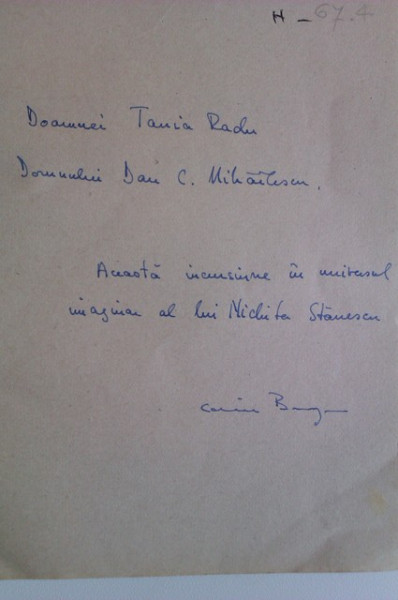 H - 67.4
Doamnei Tania Radu
Domnului Dan C. Mihăilescu.
Această incursiune în universul
imaginar al lui Nichita Stănescu